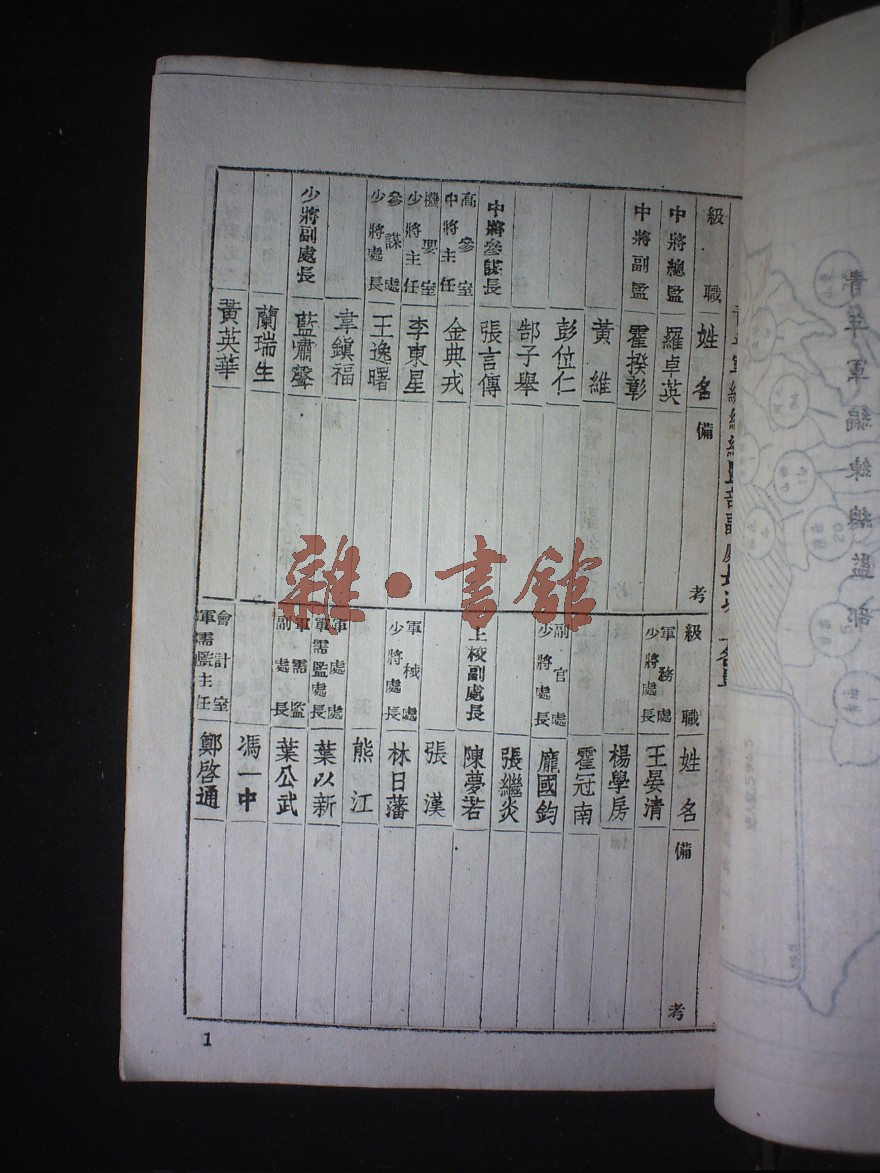 青年軍編練總監部
級職 姓名 備考
中將總監 羅卓英
中將副監 霍揆彰
黃維
彭位仁
郜子舉
中將參謀長 張言傳
高參室中將主任 金典戎
機要室少將主任 李東星
參謀處少將處長 王逸曙
韋鎮福
少將副處長 藍嘯聲
蘭瑞生
黃英華
級職 姓名 備考
軍務處少將處長 王晏清
楊學房
霍冠南
副官處少將處長 龐國鈞
張繼炎
上校副處長 陳夢若
張漢
軍械處少將處長 林日藩
熊江
軍需監處長 葉以新
軍需監副處長 葉公武
馮一中
會計室軍需監主任 鄭啓通
1
雜·書館